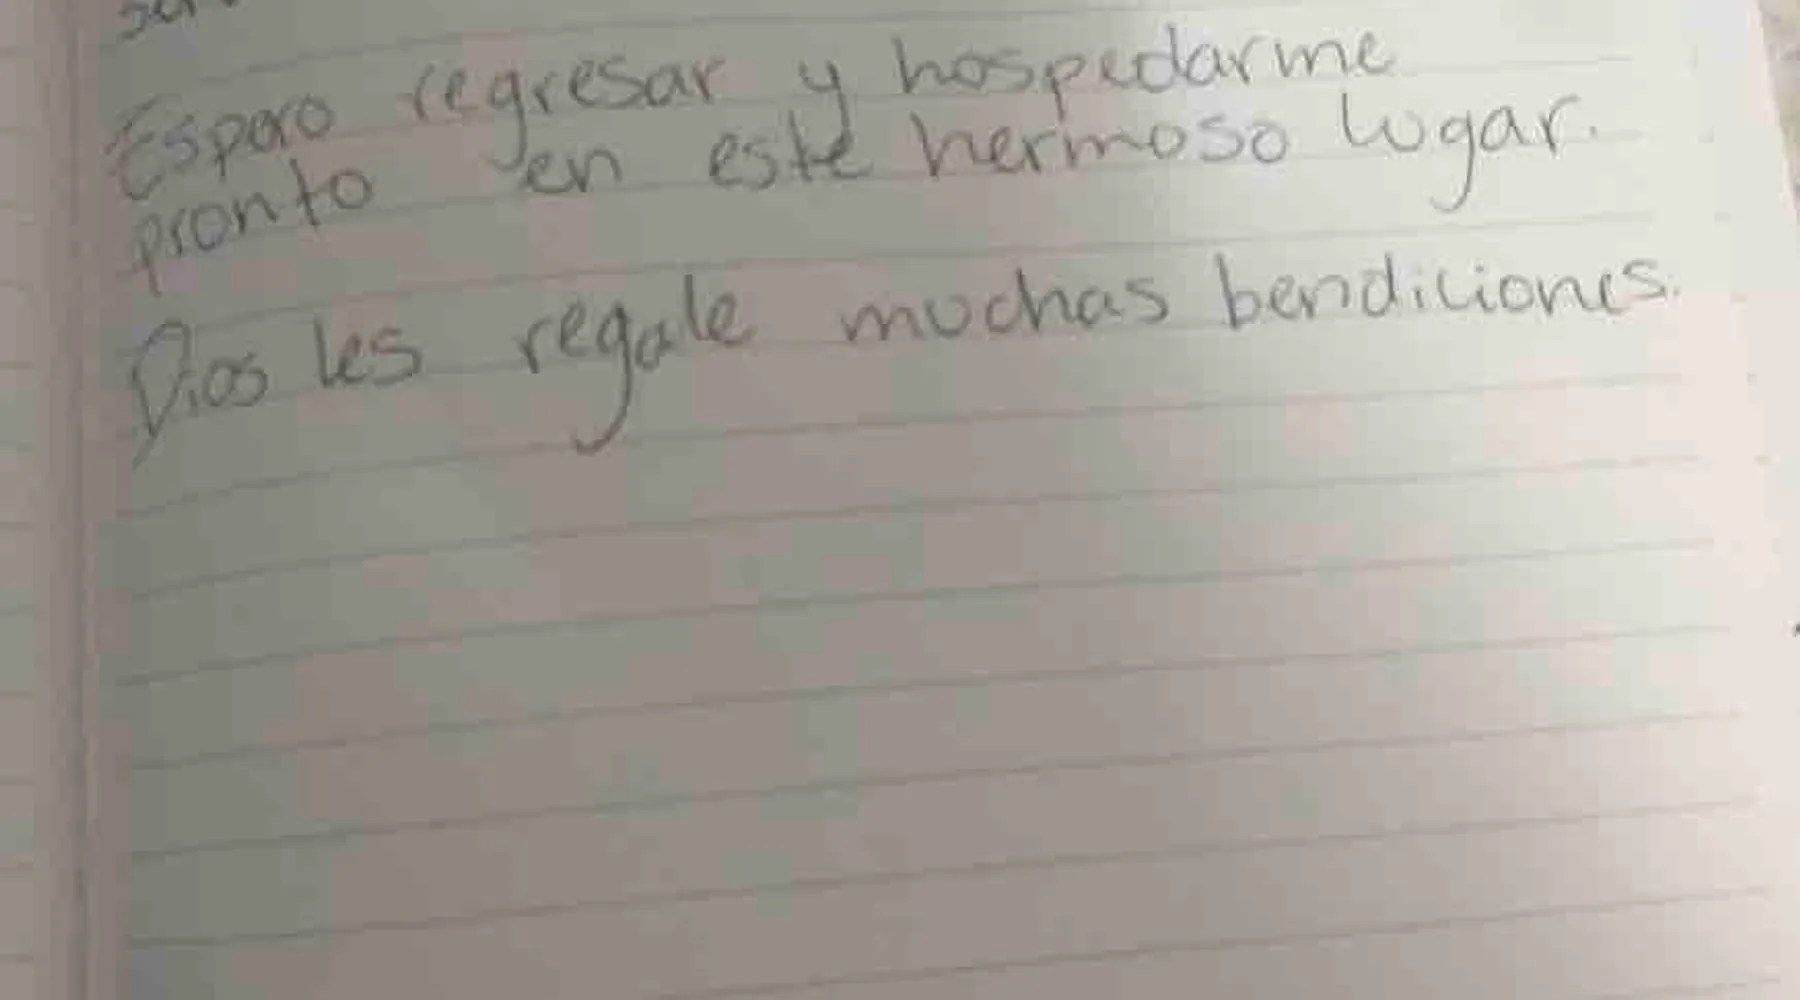 Espero regresar y hospedarme
pronto en este hermoso lugar.
Dios les regale muchas bendiciones.